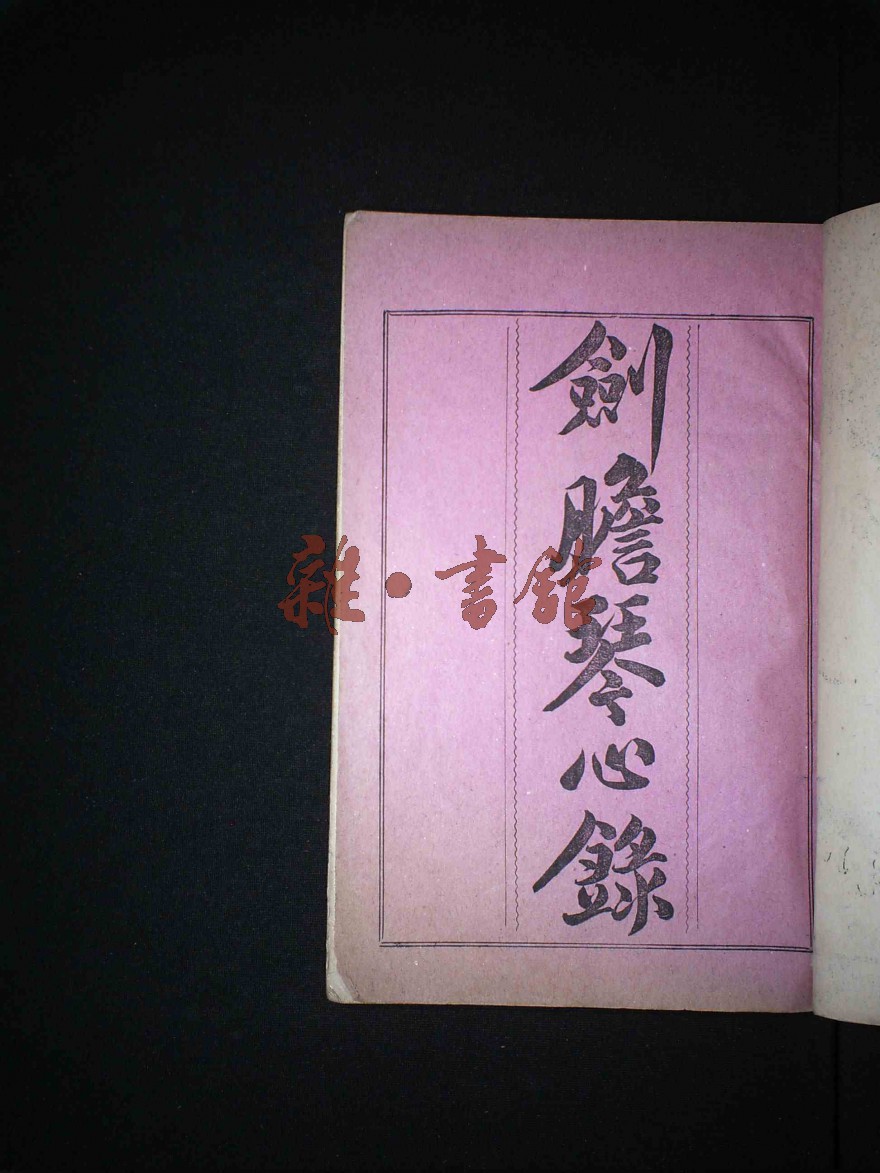 劍膽琴心錄
雜·書館